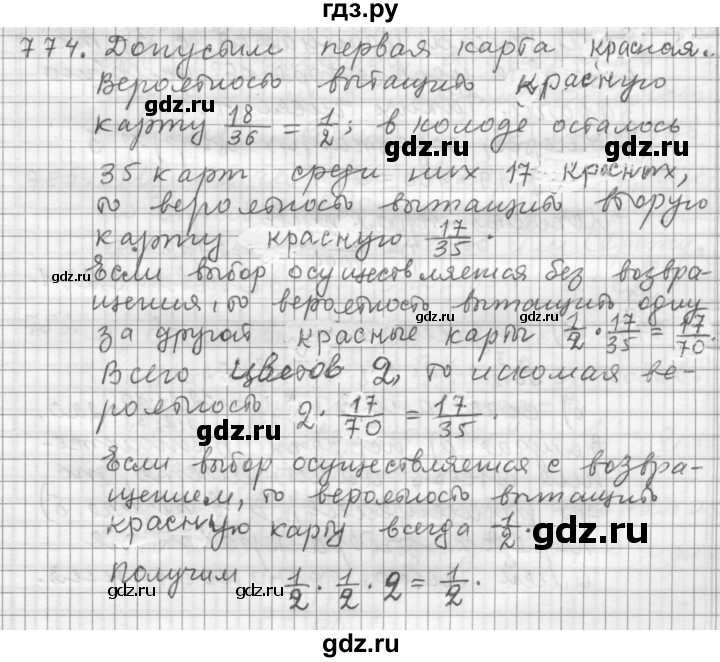 гдз.ру
774. Допустим первая карта красная.
Вероятность вытащить красную
карту 18/36 = 1/2; в колоде осталось
gdz.ru gdz.ru
35 карт среди них 17 красных,
то вероятность вытащить вторую
карту красную 17/35.
gdz.ru gdz.ru
Если выбор осуществляется без возвра-
gdz.ru
щения, то вероятность вытащить одну
за другой красные карты 1/2 · 17/35 = 17/70.
gdz.ru gdz.ru
Всего цветов 2, то искомая ве-
роятность 2 · 17/70 = 17/35.
gdz.ru gdz.ru
Если выбор осуществляется с возвра-
щением, то вероятность вытащить
красную карту всегда 1/2.
gdz.ru gdz.ru
Получим 1/2 · 1/2 · 2 = 1/2.
gdz.ru gdz.ru
gdz.ru